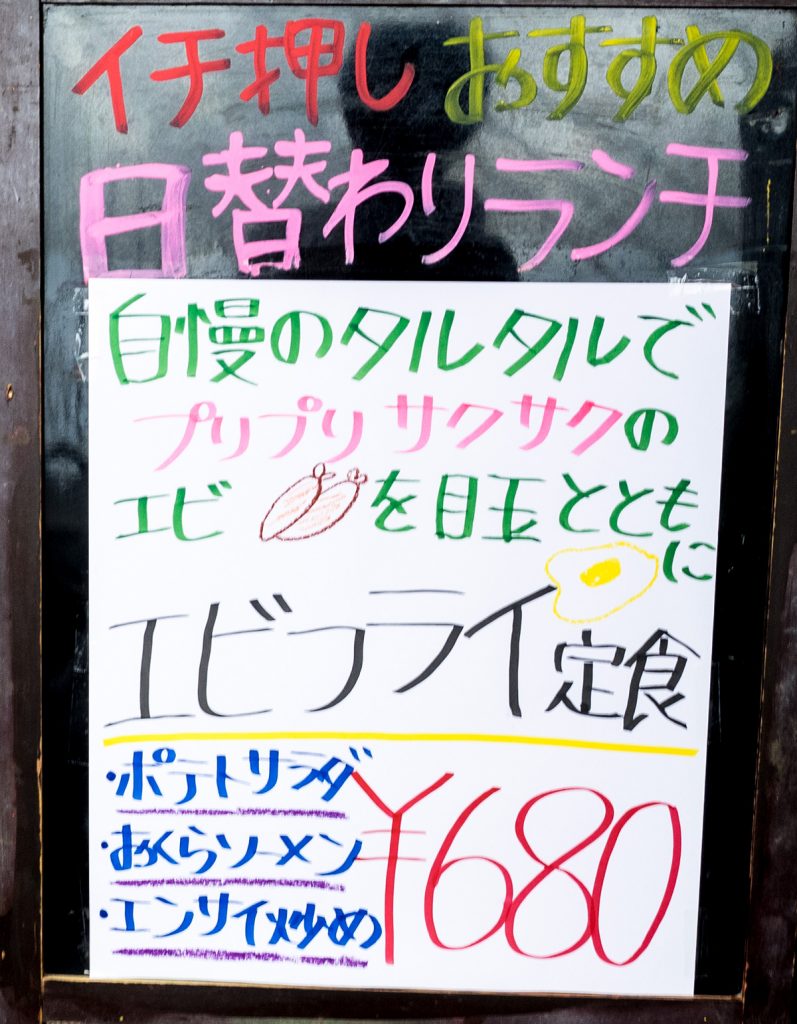 イチ押し おすすめ
日替わりランチ
自慢のタルタルで
プリプリサクサクの
エビ を目玉とともに
エビフライ定食
・ポテトサラダ
・おくらソーメン
・エンサイ炒め
¥680